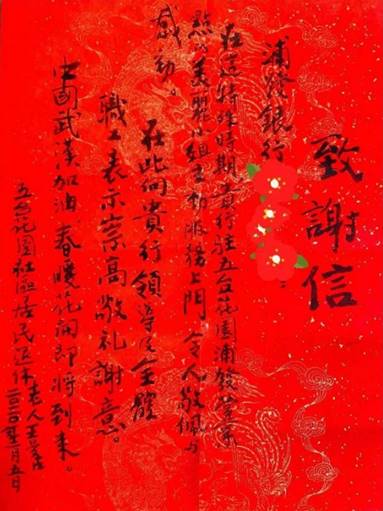 致謝信
浦發銀行：
在這特殊時期貴行駐五台花園浦發營業
點美麗小組主動服務上門令人敬佩与
感動。
在此向貴行領導及全體
職工表示崇高敬礼謝意。
中國武漢加油春暖花開即将到来。
五台花園社區居民退休老人王
二〇二〇年二月五日